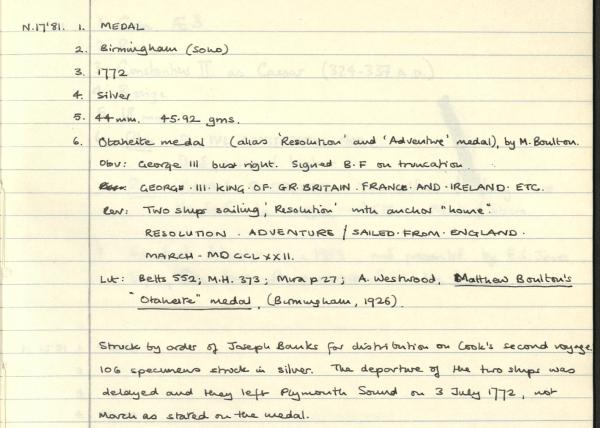 N.17'81. 1. MEDAL
2. Birmingham (SOHO)
3. 1772
4. Silver
5. 44mm. 45.92 gms.
6. Otaheite medal (alias 'Resolution' and 'Adventure' medal), by M. Boulton.
Obv: George III bust right. Signed B.F on truncation.
GEORGE · III · KING · OF · GR · BRITAIN · FRANCE · AND · IRELAND · ETC.
Rev: Two ships sailing, 'Resolution' with anchor "home".
RESOLUTION · ADVENTURE / SAILED · FROM · ENGLAND ·
MARCH · MDCCLXXII.
Lit: Betts 552; M.H. 373; Mira p 27; A. Westwood, Matthew Boulton's
"Otaheite" medal, (Birmingham, 1926).
Struck by order of Joseph Banks for distribution on Cook's second voyage
106 specimens struck in silver. The departure of the two ships was
delayed and they left Plymouth Sound on 3 July 1772, not
March as stated on the medal.